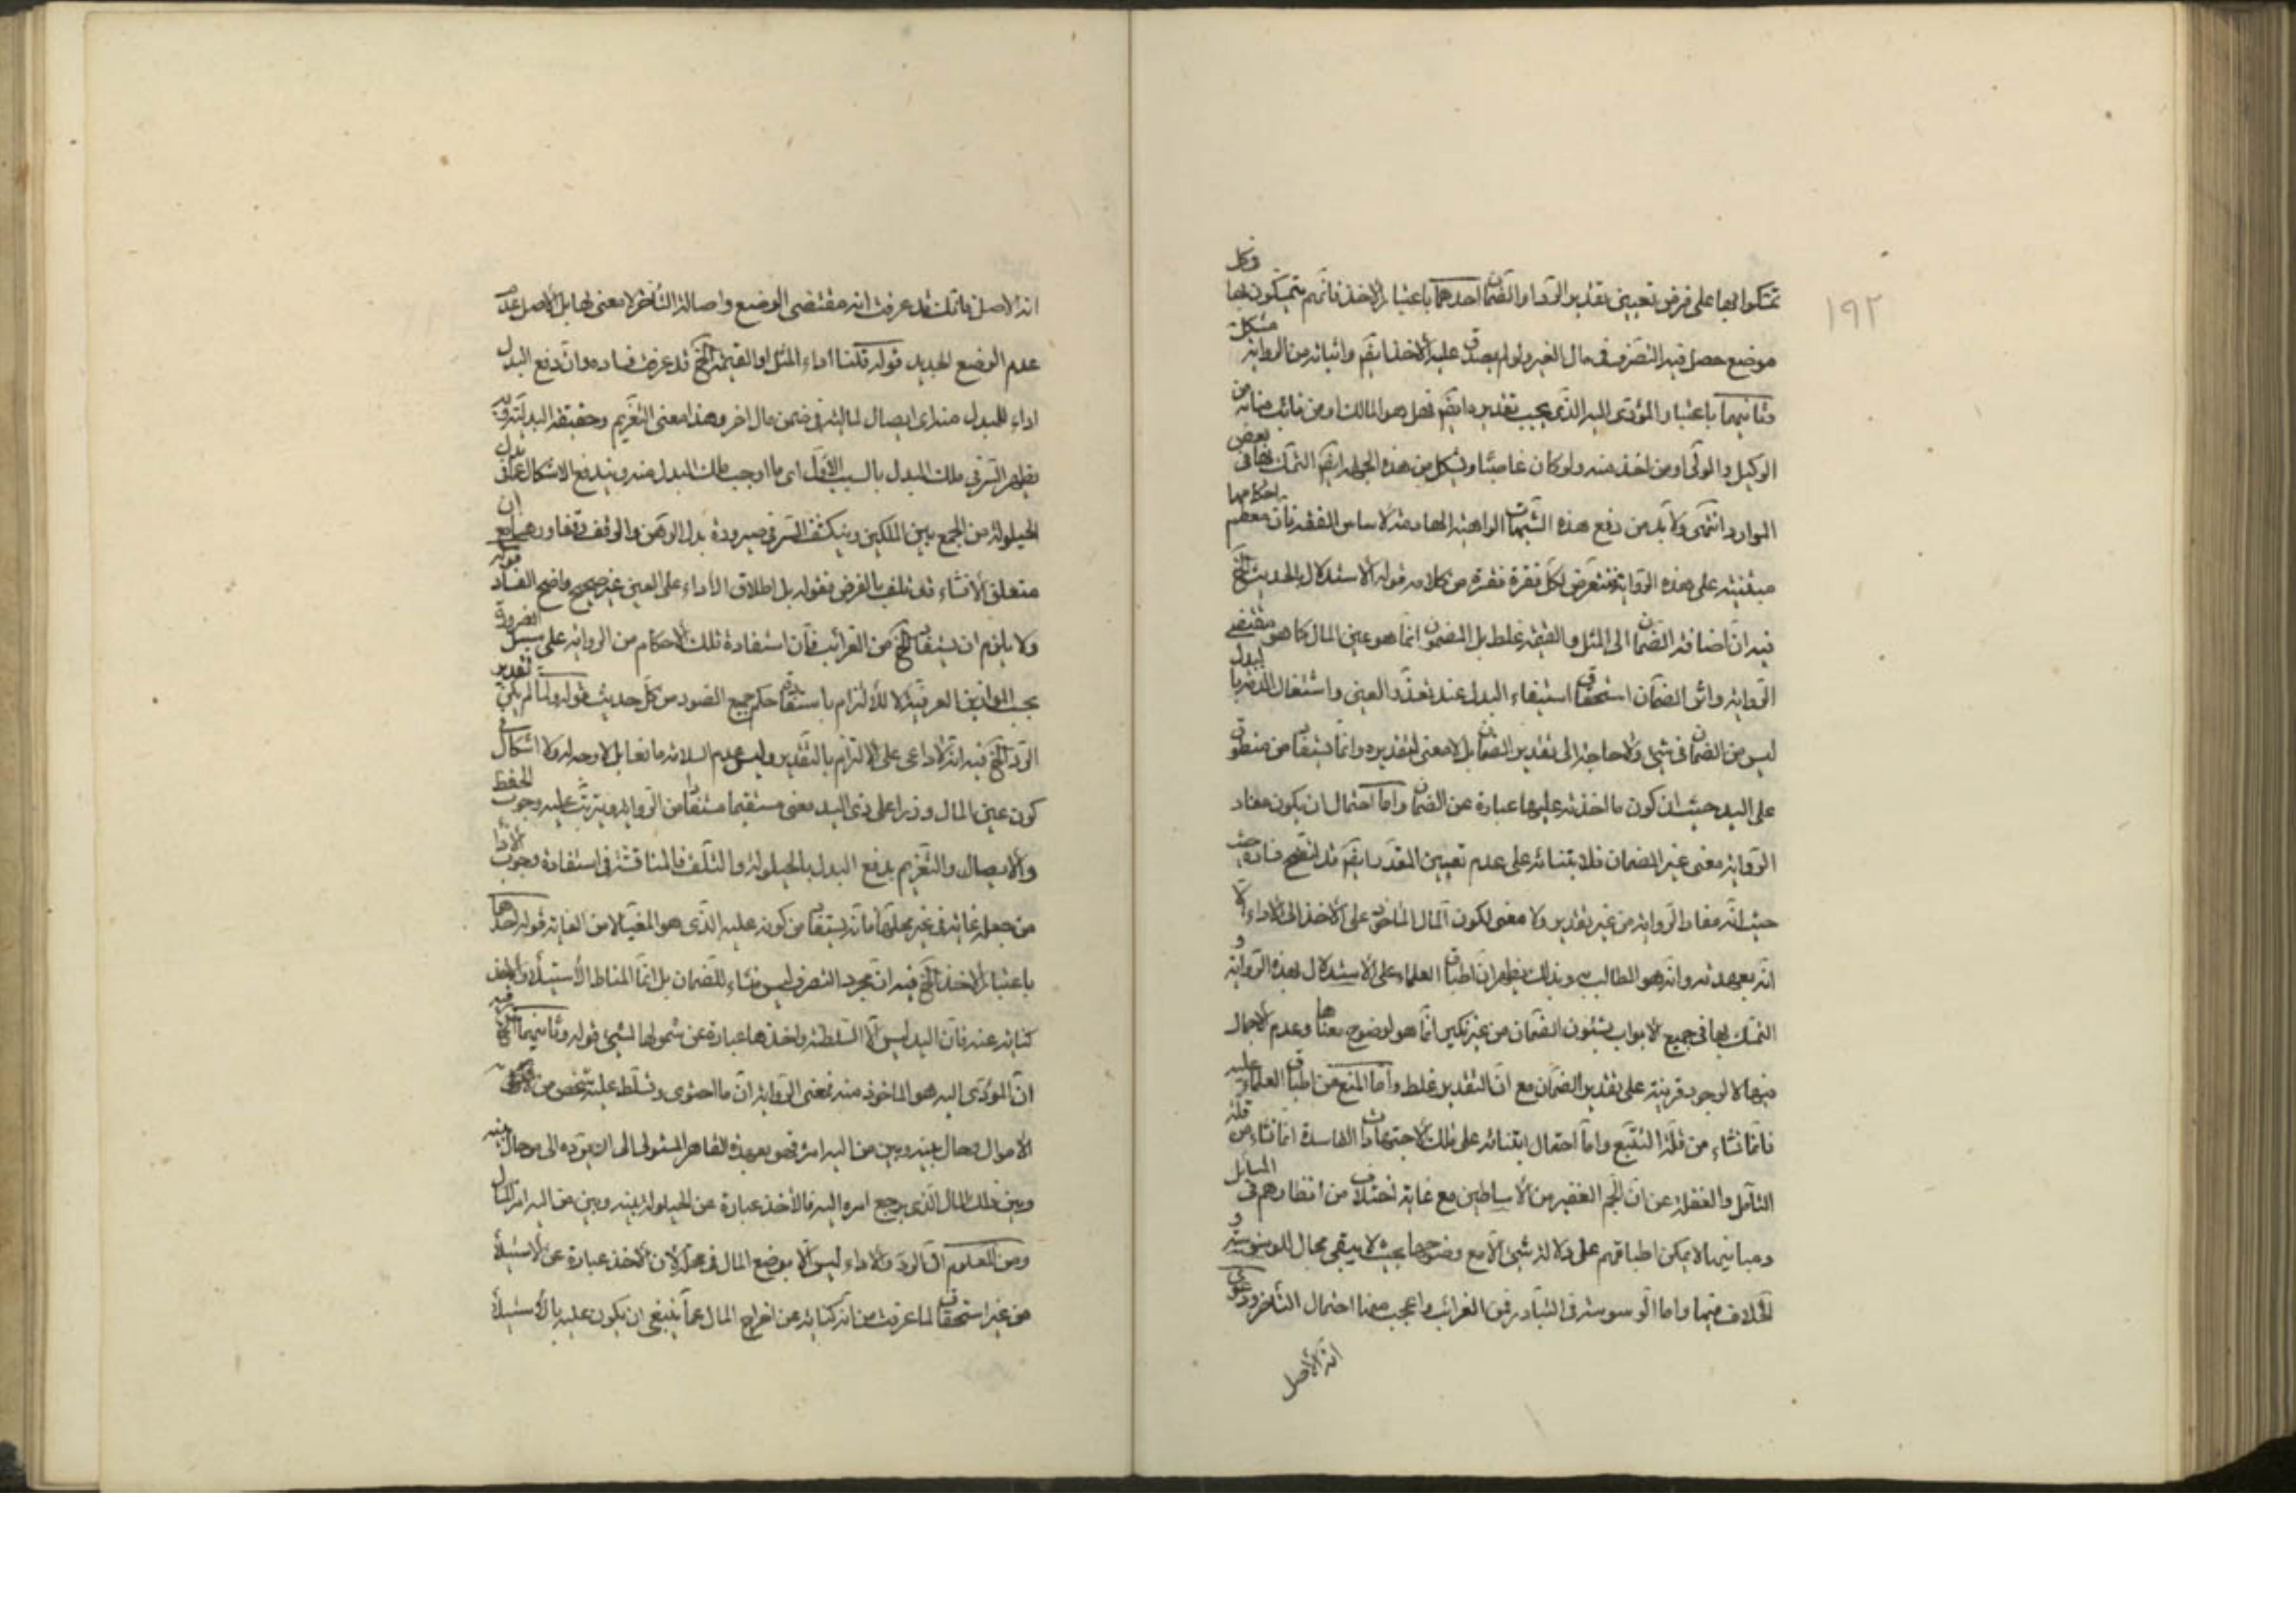 ١٩٢
تمسكوا بها على فرض تعيين تقدير الرد او الضمان احدهما باعتبار الاخذ فانهم يتمسكون بها في كل
موضع حصل فيه التصرف في مال الغير ولو لم يصدق عليه الاخذ ايضا واثباته من الرواية مشكل
وثانيهما باعتبار المؤدى اليه الذي يجب تقديره ايضا فهل هو المالك او من ناب منابه من
الوكيل والولي او من اخذ منه ولو كان غاصبا ويشكل من هذه الجهة ايضا التمسك بها في بعض
الموارد انتهى ولا بد من دفع هذه الشبهات الواهية الهادمة لاساس الفقه فان معظم احكامها
مبتنية على هذه الرواية فنتعرض لكل فقرة فقرة من كلامه قوله الاستدلال بالحديث الخ
فيه ان اضافة الضمان الى المثل والقيمة غلط بل المضمون انما هو عين المال كما هو مقتضى
الرواية واثر الضمان استحقاق استيفاء البدل عند تعذر العين واشتغال الذمة بالبدل
ليس من الضمان في شيء ولا حاجة الى تقدير الضمان بل لا معنى لتقديره وانما يستفاد من منطوق
على اليد حيث ان كون ما اخذته عليها عبارة عن الضمان واما احتمال ان يكون مفاد
الرواية معنى غير الضمان فلابتنائه على عدم تعيين المقدر ايضا قد اتضح فساده حيث
حيث انه مفاد الرواية من غير تقدير ولا معنى لكون المال الماخوذ على الاخذ الى الاداء الا
انه بعهدته وانه هو المطالب به وبذلك يظهر ان اطباق العلماء على الاستدلال بهذه الرواية و
التمسك بها في جميع الابواب بشئون الضمان من غير نكير انما هو لوضوح معناها وعدم الاجمال
فيها لا لوجود قرينة على تقدير الضمان مع ان التقدير غلط واما المنع من اطباق العلماء عليه
فانما نشاء من قلة التتبع واما احتمال ابتنائه على تلك الاجتهادات الفاسدة انما نشاء من قلة
التامل والغفلة عن ان الجم الغفير من الاساطين مع غاية اختلاف من انظارهم في المسائل
ومبانيها لا يمكن اطباقهم على دلالة شيء الا مع وضوحها بحيث لا يبقى مجال للوسوسة و
الخلاف فيها واما الوسوسة في التبادر فمن الغرائب واعجب منها احتمال التاخر ودعوى
انه الاصل
انه الاصل فانك قد عرفت انه مقتضى الوضع واصالة التاخر لا معنى لها بل الاصل عدم
عدم الوضع الجديد قوله قلنا اداء المثل او القيمة الخ قد عرفت فساده وان دفع البدل
اداء للمبدل منه اي ايصال لماليته في ضمن مال اخر وهذا معنى التغريم وحقيقة البدلية وبه
يظهر السر في ملك المبدل بالسبب الاول اي ما اوجب ملك المبدل منه ويندفع الاشكال عما في بدل
الحيلولة من الجمع بين الملكين وينكشف السر في صيرورة بدل الرهن والوقف وقفا ورهنا مع ان
متعلق الانشاء قد تلف بالفرض فقوله بل اطلاق الاداء على العين غير صحيح واضح الفساد قوله
ولا يلزم ان يستفاد الخ من الغرائب فان استفادة تلك الاحكام من الرواية على سبيل الضرورة
بحسب الموازين العرفية لا للالتزام باستفادة حكم جميع الصور من كل حديث قوله ولما لم يكن تقدير
الرد الخ فيه انه لا داعي على الالتزام بالتقدير وليس عدم السلامة ما نعا بل لا وجه له ولا اشكال في
كون عين المال وزرا على ذي اليد معنى مستقيما مستفادا من الرواية ويترتب عليه وجوب الحفظ
والايصال والتغريم بدفع البدل بالحيلولة والتلف فالمناقشة في استفادة وجوب الاداء
من جعله غاية في غير محلها فانه يستفاد من كونه عليه الذي هو المغيا لا من الغاية قوله احدهما
باعتبار الاخذ الخ فيه ان مجرد التصرف ليس منشاء للضمان بل انما المناط الاستيلاء والاخذ
كناية عنه فان اليد ليس الا السلطنة واخذها عبارة عن شمولها لشيء قوله وثانيهما الخ فيه
ان المؤدى اليه هو الماخوذ منه فمعنى الرواية ان ما احتوى وتسلط عليه شخص من
الاموال وحال بينه وبين من اليه امره فهو بعهدة القاهر المستولي الى ان يرده الى من حال بينه
وبين ذلك المال الذي يرجع امره اليه فالاخذ عبارة عن الحيلولة بينه وبين من اليه امر المال
ومن المعلوم ان الرد والاداء ليس الا بوضع المال في محله لان الاخذ عبارة عن الاستيلاء
من غير استحقاق لما عرفت من انه كناية عن اخراج المال عما ينبغي ان يكون عليه بالاستيلاء